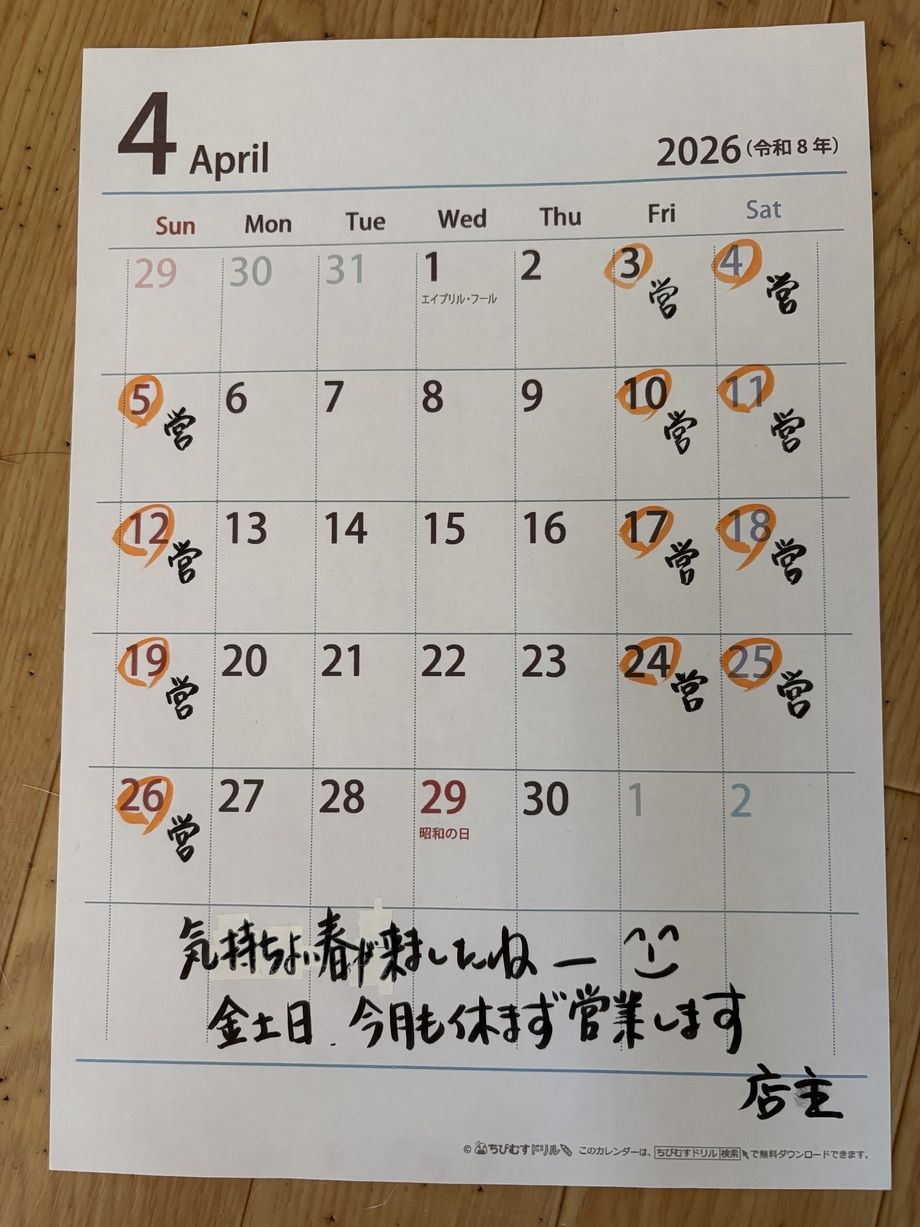 4 April
2026(令和8年)
Sun Mon Tue Wed Thu Fri Sat
29 30 31 1 2 3 4
エイプリル・フール
営 営
5 6 7 8 9 10 11
営 営 営
12 13 14 15 16 17 18
営 営 営
19 20 21 22 23 24 25
営 営 営
26 27 28 29 30 1 2
昭和の日
営
気持ちよい春が来ましたねー
金土日 今月も休まず営業します
店主
© ちびむすドリル このカレンダーは、ちびむすドリル 検索 で無料ダウンロードできます。